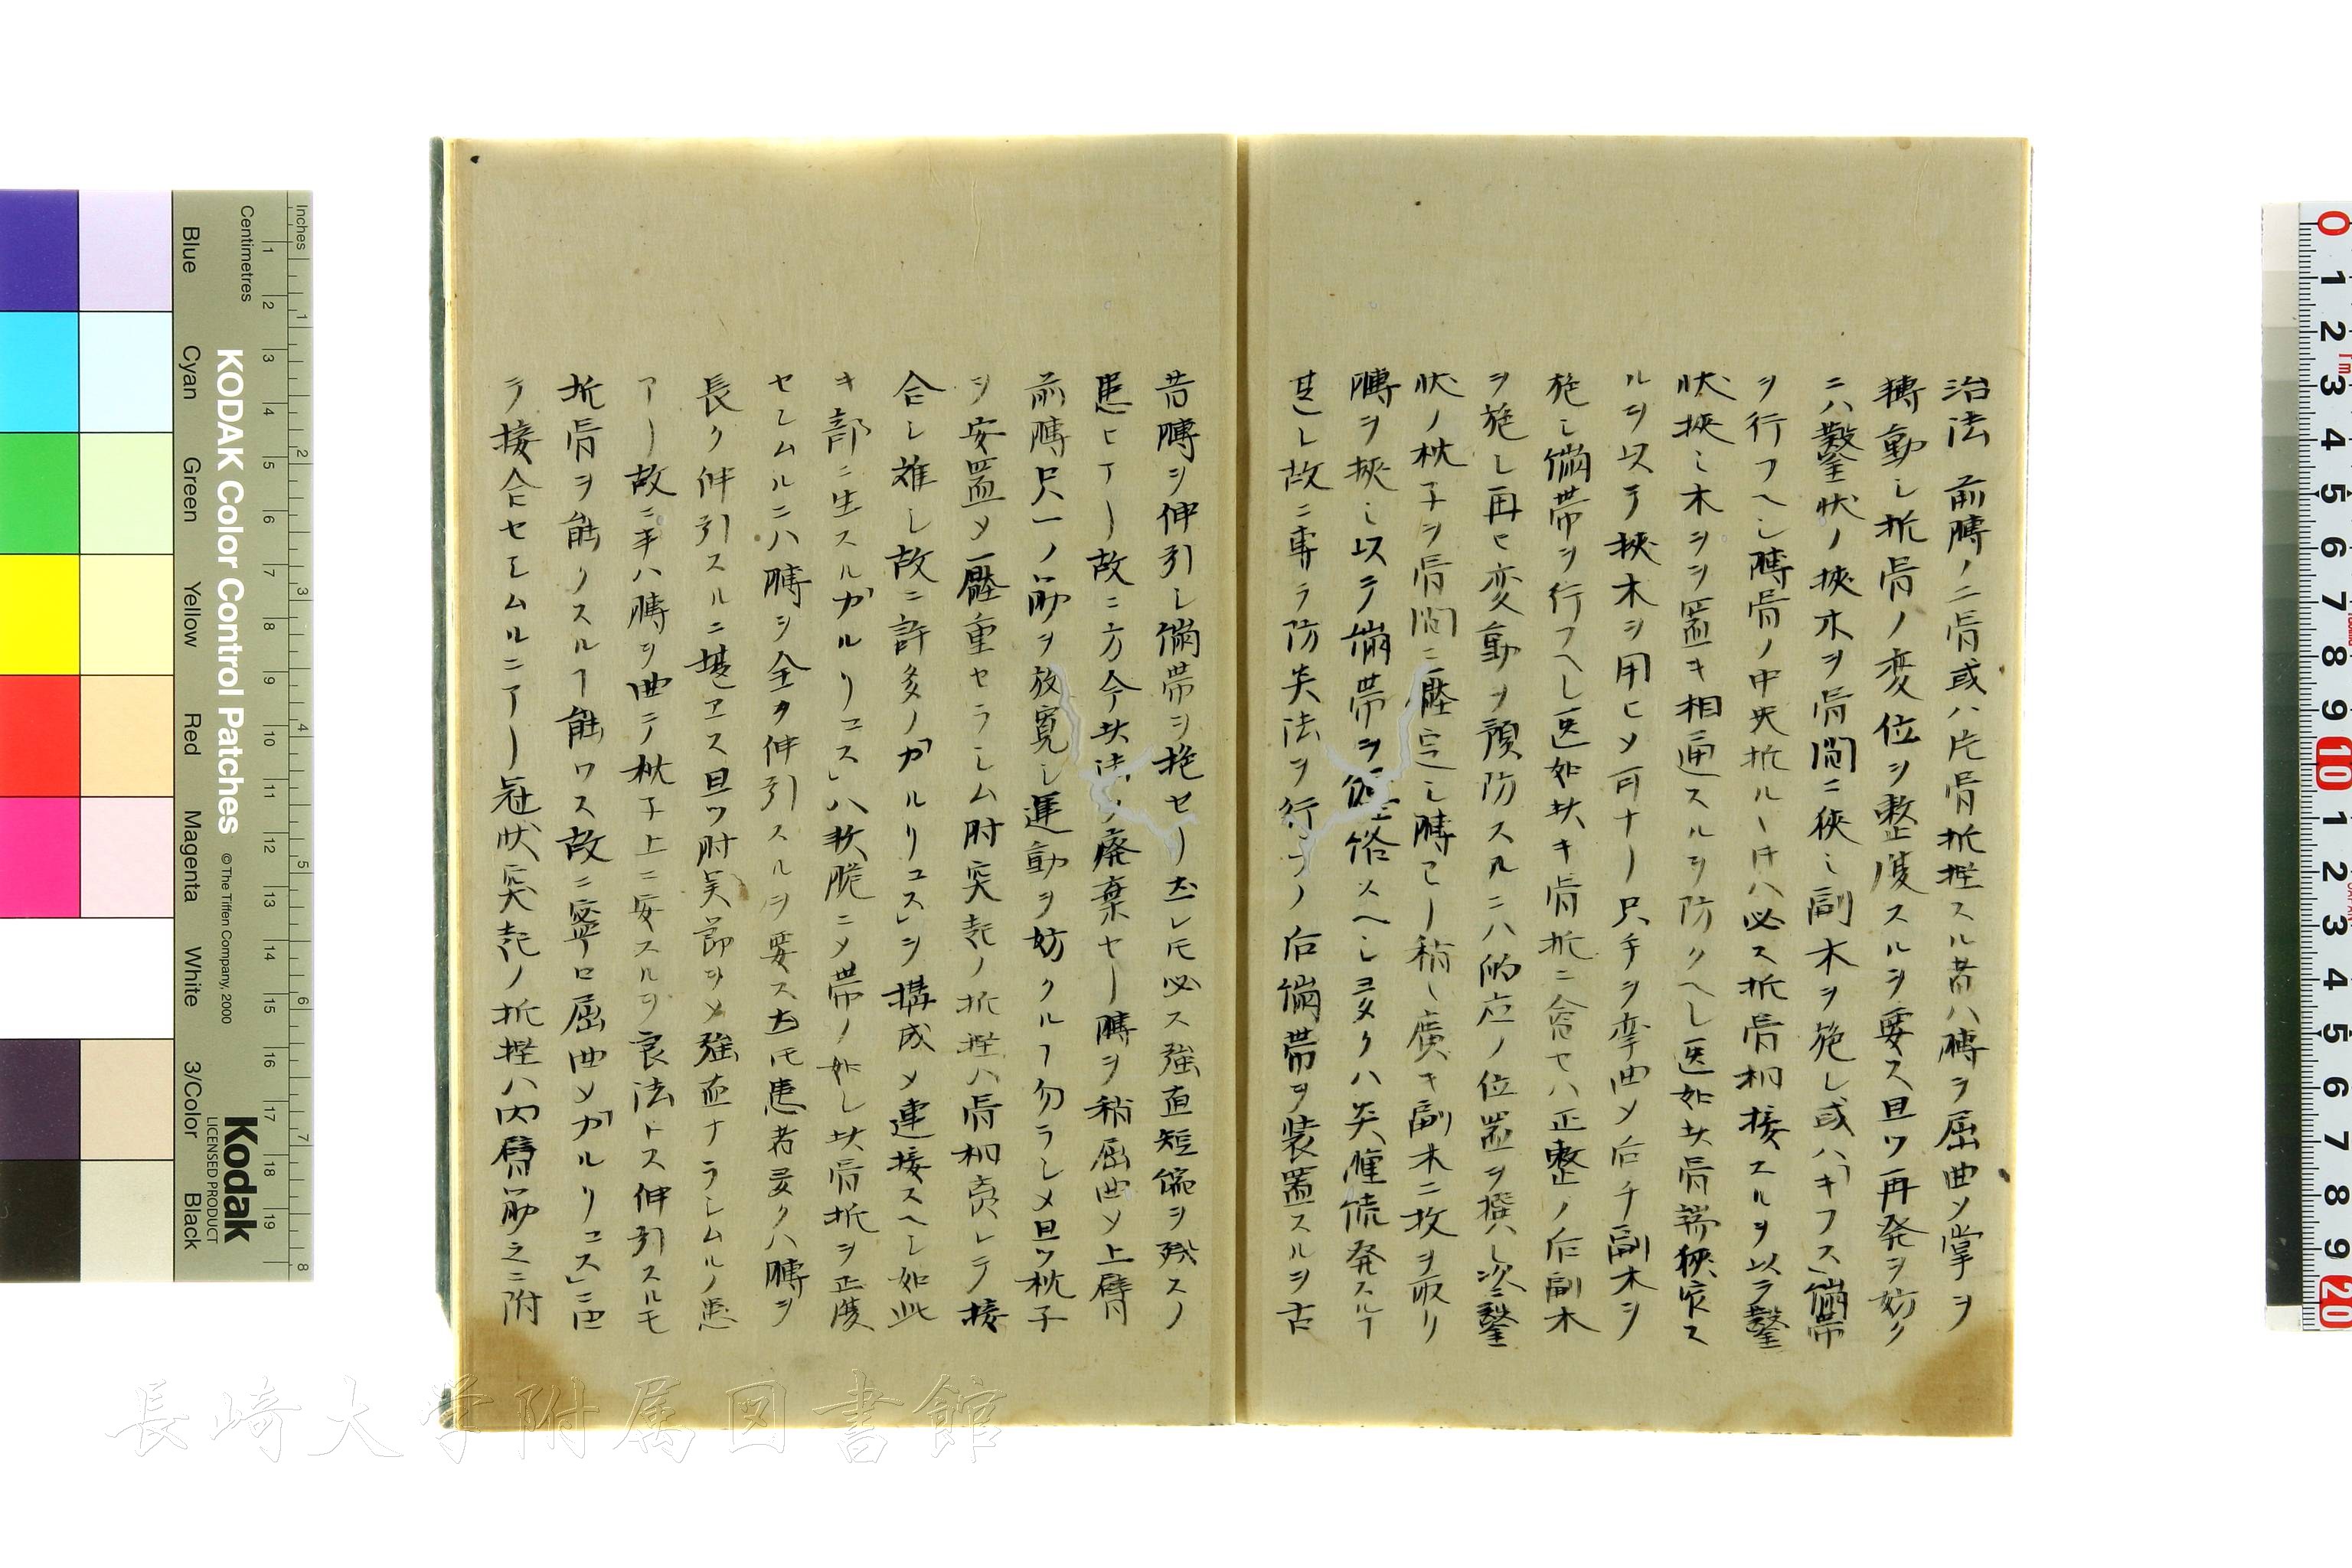 治法 前膊ノ二骨或ハ片骨折挫スル者ハ膊ヲ屈曲メ掌ヲ
轉動シ折骨ノ変位ヲ整復スルヲ要ス且ツ再発ヲ妨ク
ニハ鑿状ノ挾木ヲ骨間ニ狹ミ副木ヲ施シ或ハ「キフス」繃帯
ヲ行フヘシ膊骨ノ中央折ルヽ寸ハ必ス折骨相接スルヲ以テ鑿
状挾ミ木ヲ置キ相逼スルヲ防クヘシ医如此骨端狹窄ス
ルヲ以テ挾木ヲ用ヒメ可ナリ只手ヲ挛曲メ后チ副木ヲ
施シ繃帯ヲ行フヘシ医如此キ骨折ニ會セハ正整ノ后副木
ヲ施シ再ヒ変動ヲ預防スルニハ的应ノ位置ヲ撰ハシ次ニ鑿
状ノ枕子ヲ骨間ニ壓定シ膊ヨリ稍々廣キ副木二枚ヲ取リ
膊ヲ挾ミ以テ繃帯ヲ 絡スヘシ多クハ炎腫焼発スルヿ
甚シ故ニ専ラ防炎法ヲ行フノ后繃帯ヲ装置スルヲ古
昔膊ヲ伸引シ繃帯ヲ施セリ 𪜈必ス強直短縮ヲ残スノ
患ヒアリ故ニ方今此法ヲ廃棄セリ膊ヲ稍屈曲メ上臂
前膊只一ノ筋ヲ放寛シ運動ヲ妨クルヿ勿ラシメ且ツ枕子
ヲ安置メ壓重セラシム肘突起ノ折挫ハ骨相 レテ接
合シ難シ故ニ許多ノ「カルリュス」ヲ搆成メ連接スヘシ如此
キ部ニ生スル「カルリュス」ハ軟脆ニメ帯ノ如シ此骨折ヲ正復
セシムルニハ膊ヲ全ク伸引スルヲ要ス 𪜈患者多クハ膊ヲ
長ク伸引スルニ堪ヱス且ツ肘関節ヲメ強直ナラシムルノ患
アリ故ニ半ハ膊ヲ曲ニノ枕子上ニ安スルヲ良法トス伸引スルモ
折骨ヲ能クスルヿ能ワス故ニ寧ロ屈曲メ「カルリュス」ニ因
テ接合セシムルニアリ冠状突起ノ折挫ハ内臂筋之ニ附
Inches
Centimetres
KODAK Color Control Patches
© The Tiffen Company, 2000
Kodak
LICENSED PRODUCT
Blue
Cyan
Green
Yellow
Red
Magenta
White
3/Color
Black
長崎大学附属図書館